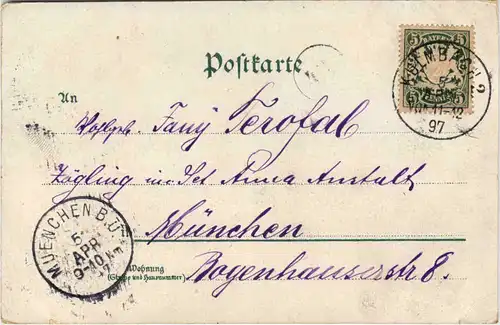 Postkarte
5 BAYERN 5
KULMBACH 2
5
97
An
Wohlgb. Fany Terofal
Zögling in Set Anna Anstalt
München
Wohnung
(Straße und Hausnummer)
Bogenhauserstr 8.
MUENCHEN B.O
5
APR
9-10